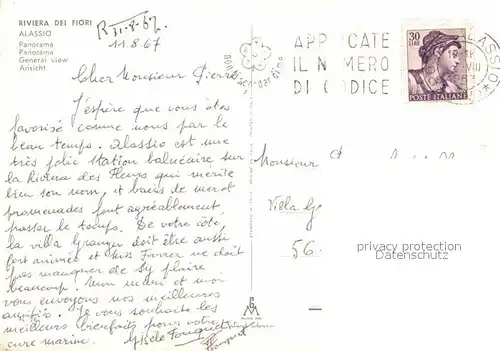 RIVIERA DEI FIORI
ALASSIO
Panorama
Panorama
General view
Ansicht
R 31-8-67
11.8.67
APP CATE
IL N MERO
DI CODICE
30
LIRE
POSTE ITALIANE
Cher Monsieur Pierre
J'espère que vous êtes
favorisé comme nous par le
beau temps. Alassio est une
très jolie station balnéaire sur
la Riviera des Fleurs qui mérite
bien son nom, et bains de mer et
promenades font agréablement
passer le temps. De votre côté,
la villa Granger doit être aussi
fort animée et ne doit
pas manquer de s'y plaire
beaucoup. Mon mari et moi
vous envoyons nos meilleures
amitiés. Je vous souhaite les
meilleurs bienfaits pour votre
cure marine.
Gisèle Fouquet
Fouquet
Monsieur
Villa
56.
privacy protection
Datenschutz